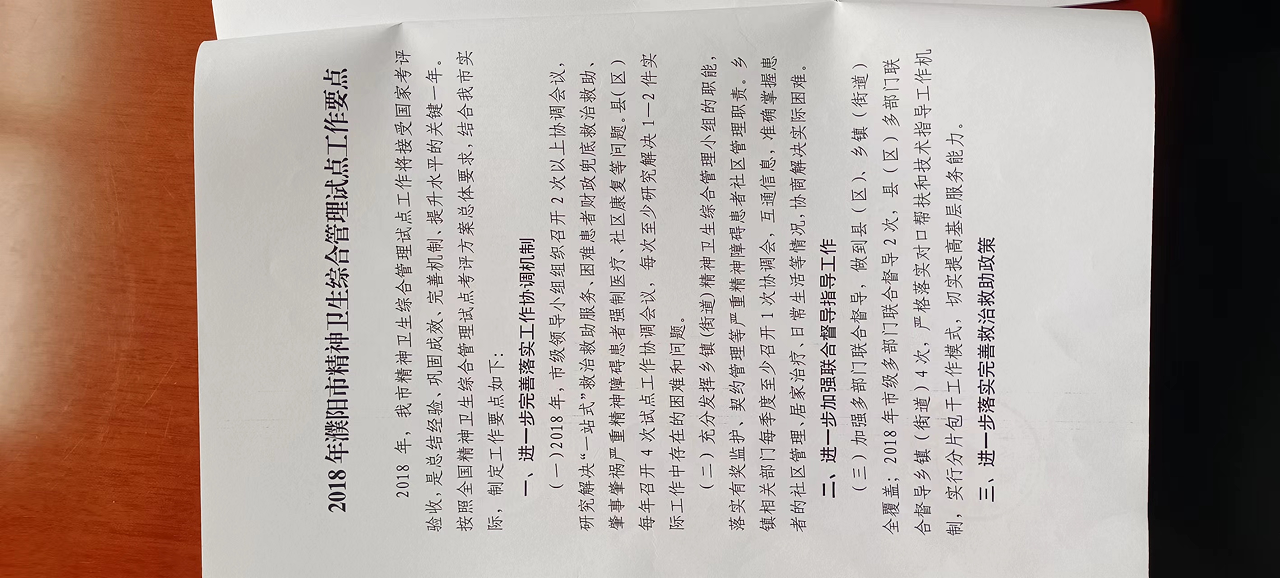 2018 年濮阳市精神卫生综合管理试点工作要点
2018 年，我市精神卫生综合管理试点工作将接受国家考评
验收,是总结经验、巩固成效、完善机制、提升水平的关键一年。
按照全国精神卫生综合管理试点考评方案总体要求，结合我市实
际，制定工作要点如下：
一、进一步完善落实工作协调机制
（一）2018 年，市级领导小组织召开 2 次以上协调会议，
研究解决“一站式”救治救助服务、困难患者财政兜底救治救助、
肇事肇祸严重精神障碍患者强制医疗、社区康复等问题。县(区)
每年召开 4 次试点工作协调会议，每次至少研究解决 1—2 件实
际工作中存在的困难和问题。
（二）充分发挥乡镇(街道)精神卫生综合管理小组的职能，
落实有奖监护、契约管理等严重精神障碍患者社区管理职责。乡
镇相关部门每季度至少召开 1 次协调会，互通信息，准确掌握患
者的社区管理、居家治疗、日常生活等情况,协商解决实际困难。
二、进一步加强联合督导指导工作
（三）加强多部门联合督导，做到县（区）、乡镇（街道）
全覆盖；2018 年市级多部门联合督导 2 次，县（区）多部门联
合督导乡镇（街道）4 次，严格落实对口帮扶和技术指导工作机
制，实行分片包干工作模式，切实提高基层服务能力。
三、进一步落实完善救治救助政策